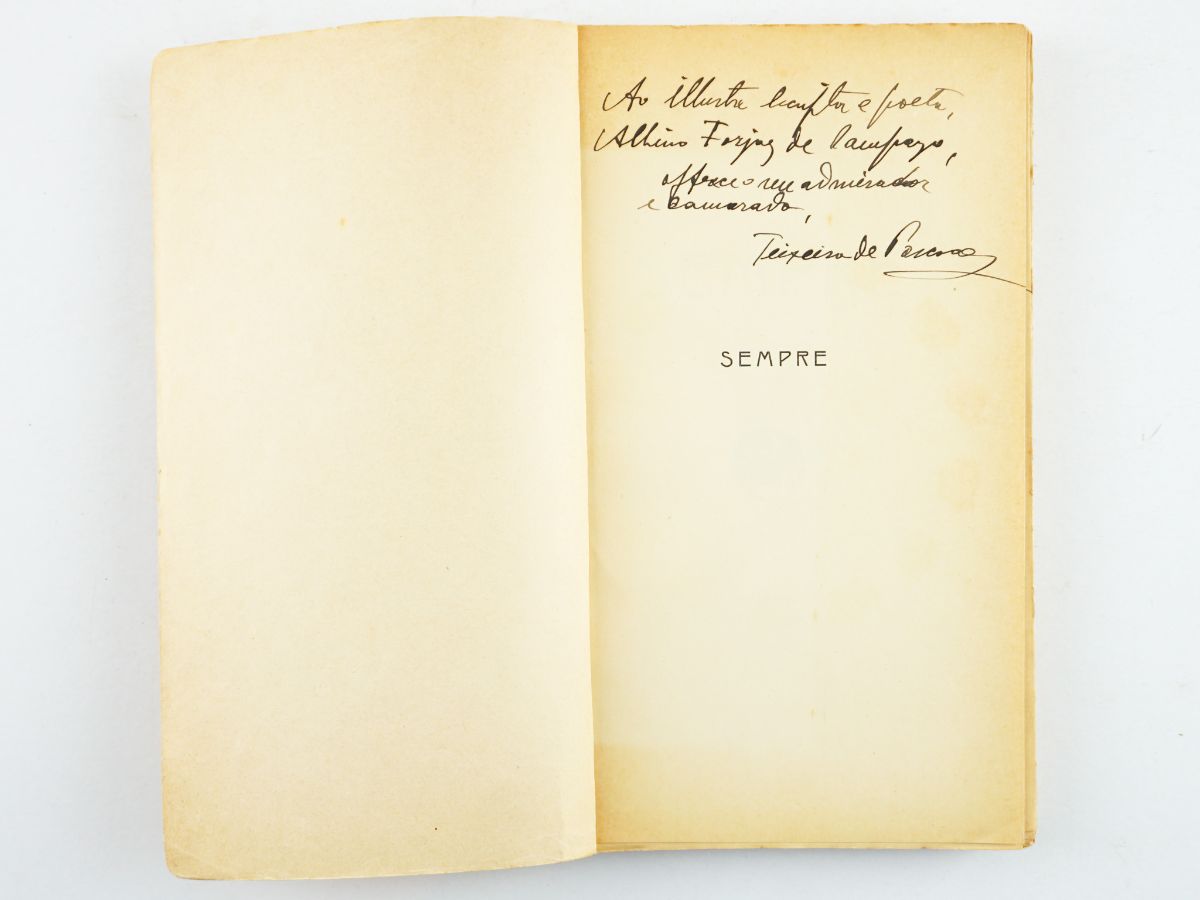 Ao illustre escriptor e poeta,
Albino Forjaz de Sampayo,
offerece o seu admirador
e camarada,
Teixeira de Pascoaes
SEMPRE